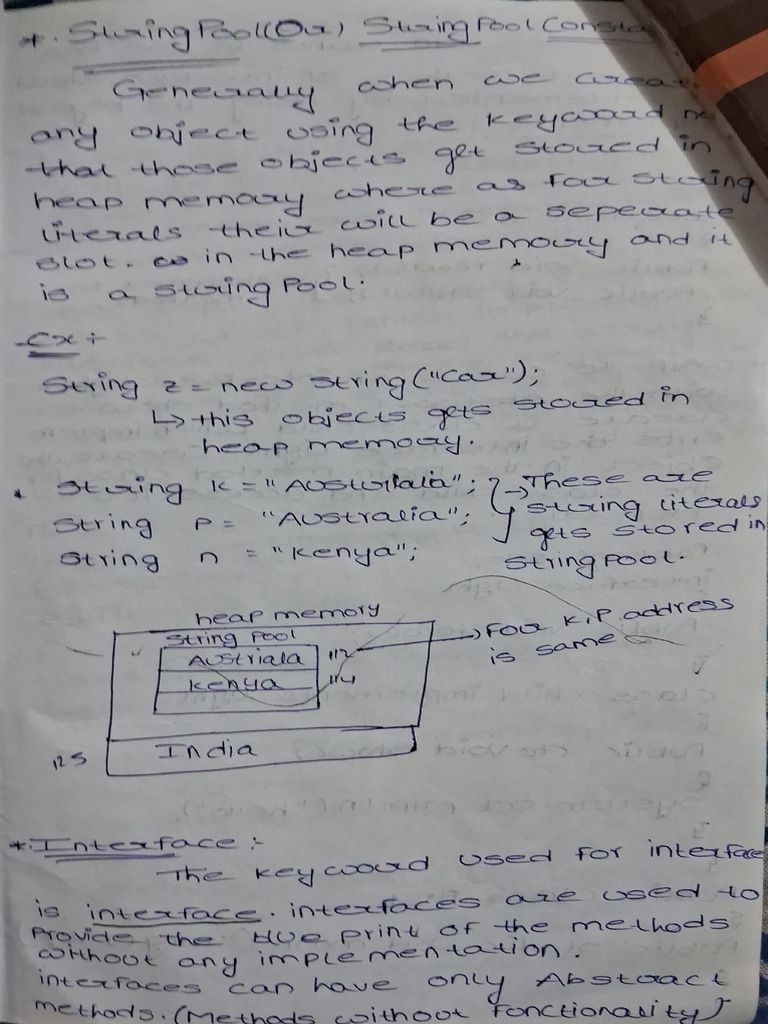 *. String Pool (Or) String Pool Consta
Generally when we creat
any object using the keyword n
that those objects get stored in
heap memory where as for string
literals their will be a seperate
slot. in the heap memory and it
is a string Pool.
Ex :
String z = new string ("Car");
↳ this objects gets stored in
heap memory.
* String k = "Australia"; → These are
String p = "Australia"; string literals
String n = "Kenya"; gets stored in
string pool.
heap memory
String Pool
Austriala 112 → For K, P address
is same
Kenya 114
125 India
* Interface :-
The keyword used for interface
is interface. interfaces are used to
Provide the blue print of the methods
without any implementation.
interfaces can have only Abstract
methods. (Methods without Fonctionality)